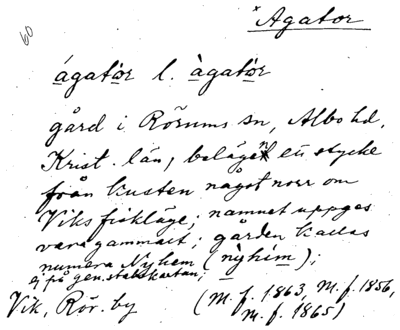 60
* Agator
ágatòr l. àgatór
gård i Rörums sn, Albo hd,
Krist. län, belägen ett stycke
från kusten något norr om
Viks fiskläge; namnet uppges
vara gammalt; gården kallas
numera Nyhem (nỳhím);
ej på gen.stabskartan;
Vik, Rör. by (M. f. 1863, M. f. 1856,
M. f. 1865)